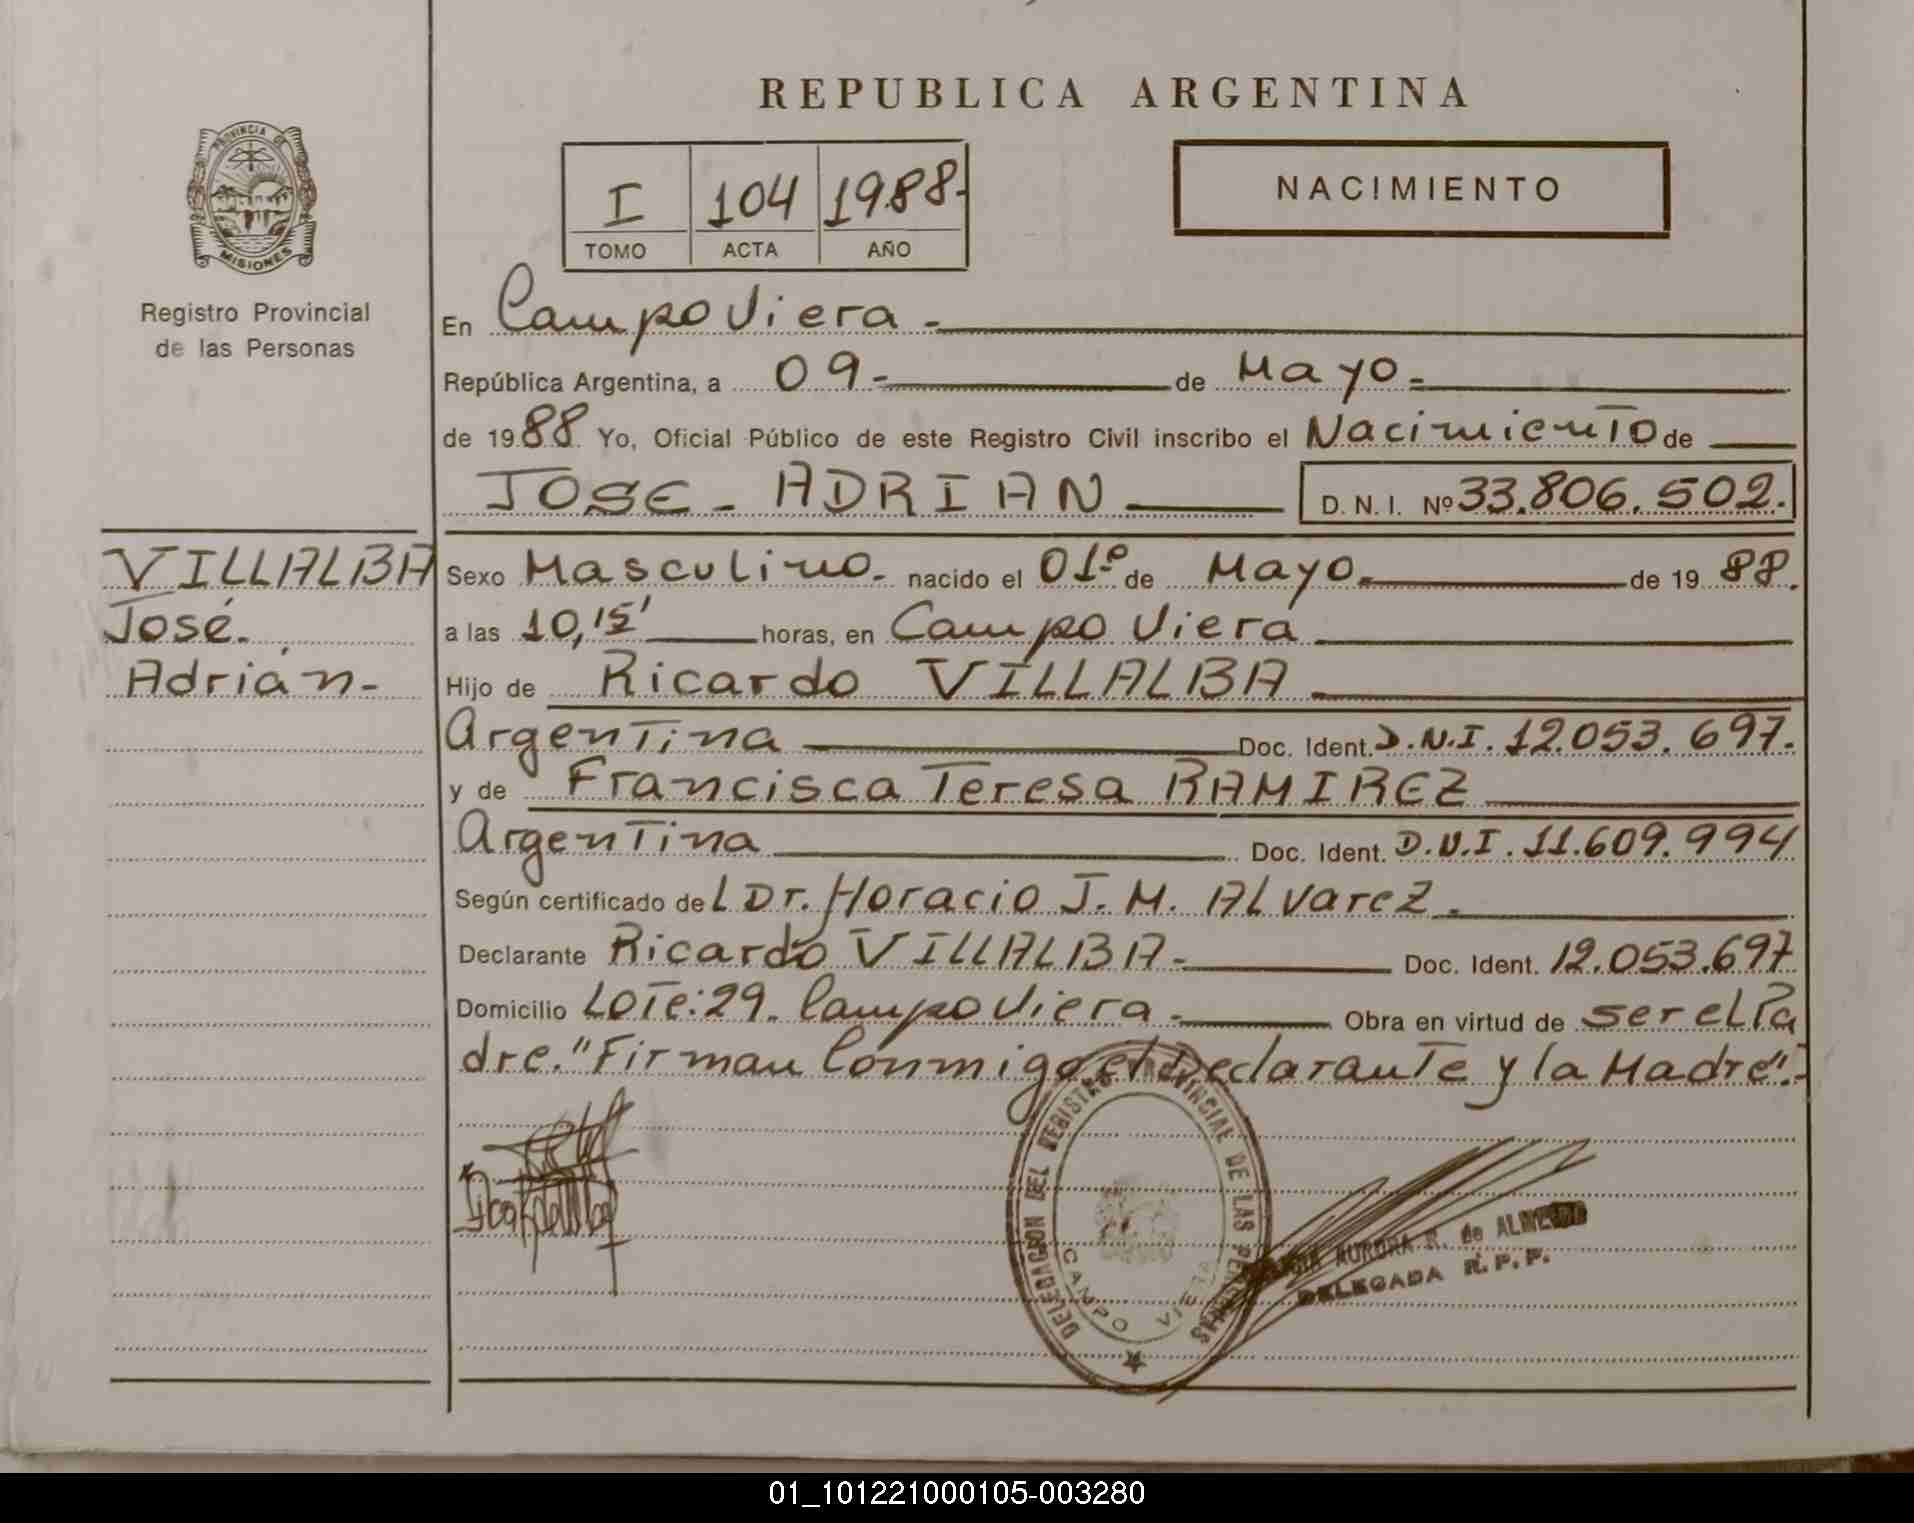 REPUBLICA ARGENTINA
PROVINCIA DE
MISIONES
Registro Provincial
de las Personas
I 104 1988.-
TOMO ACTA AÑO
NACIMIENTO
En Campo Viera.-
República Argentina, a 09.- de Mayo.-
de 1988. Yo, Oficial Público de este Registro Civil inscribo el Nacimiento de
JOSE - ADRIAN D. N. I. Nº 33.806.502.
VILLALBA
José.
Adrián.-
Sexo Masculino.- nacido el 01º de Mayo. de 19 88.
a las 10,15' horas, en Campo Viera
Hijo de Ricardo VILLALBA
Argentina Doc. Ident. D.N.I. 12.053.697.-
y de Francisca Teresa RAMIREZ
Argentina Doc. Ident. D.N.I. 11.609.994
Según certificado del Dr. Horacio J. M. Alvarez.
Declarante Ricardo VILLALBA.- Doc. Ident. 12.053.697
Domicilio Lote: 29. Campo Viera.- Obra en virtud de ser el Pa
dre. "Firman Conmigo el Declarante y la Madre".-
DELEGACION DEL REGISTRO PROVINCIAL DE LAS PERSONAS
CAMPO VIERA
AURORA R. de
DELEGADA R. P. P.
01_101221000105-003280